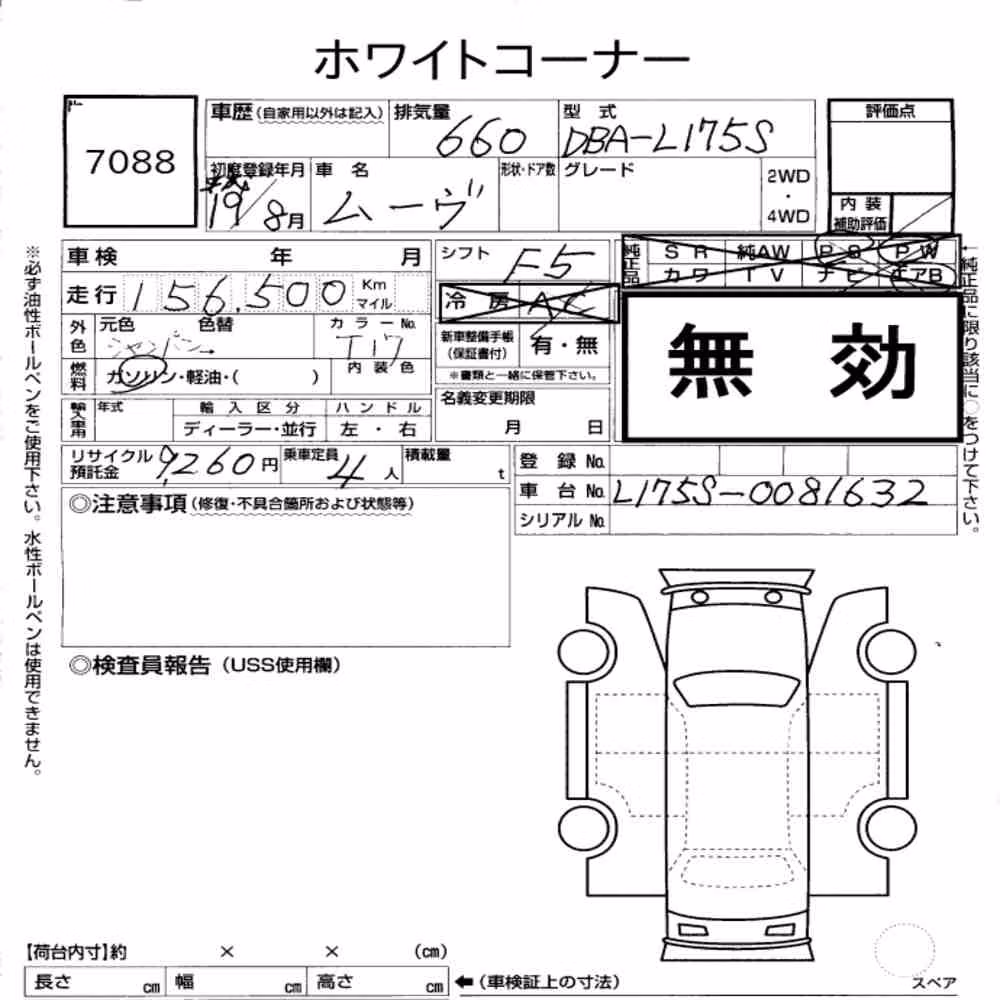 ホワイトコーナー
7088
車歴(自家用以外は記入) 排気量 660 型式 DBA-L175S 評価点
初度登録年月 平成 19/8月 車名 ムーヴ 形状・ドア数 グレード 2WD・4WD
内装補助評価
車検 年 月 シフト F5
純正品 SR 純AW PS PW
カワ TV ナビ エアB
走行 156,500 Km マイル 冷房 AC
無効
外色 元色 色替 シャンパン カラーNo. T17
新車整備手帳(保証書付) 有・無
※書類と一緒に保管下さい。
燃料 ガソリン・軽油・( ) 内装色
名義変更期限 月 日
輸入車用 年式 輸入区分 ハンドル
ディーラー・並行 左・右
リサイクル預託金 9,260円 乗車定員 4人 積載量 t
登録No.
車台No. L175S-0081632
シリアルNo.
◎注意事項(修復・不具合箇所および状態等)
◎検査員報告(USS使用欄)
※必ず油性ボールペンをご使用下さい。水性ボールペンは使用できません。
↑純正品に限り該当に○をつけて下さい。
【荷台内寸】約 × × (cm)
長さ cm 幅 cm 高さ cm ←(車検証上の寸法)
スペア